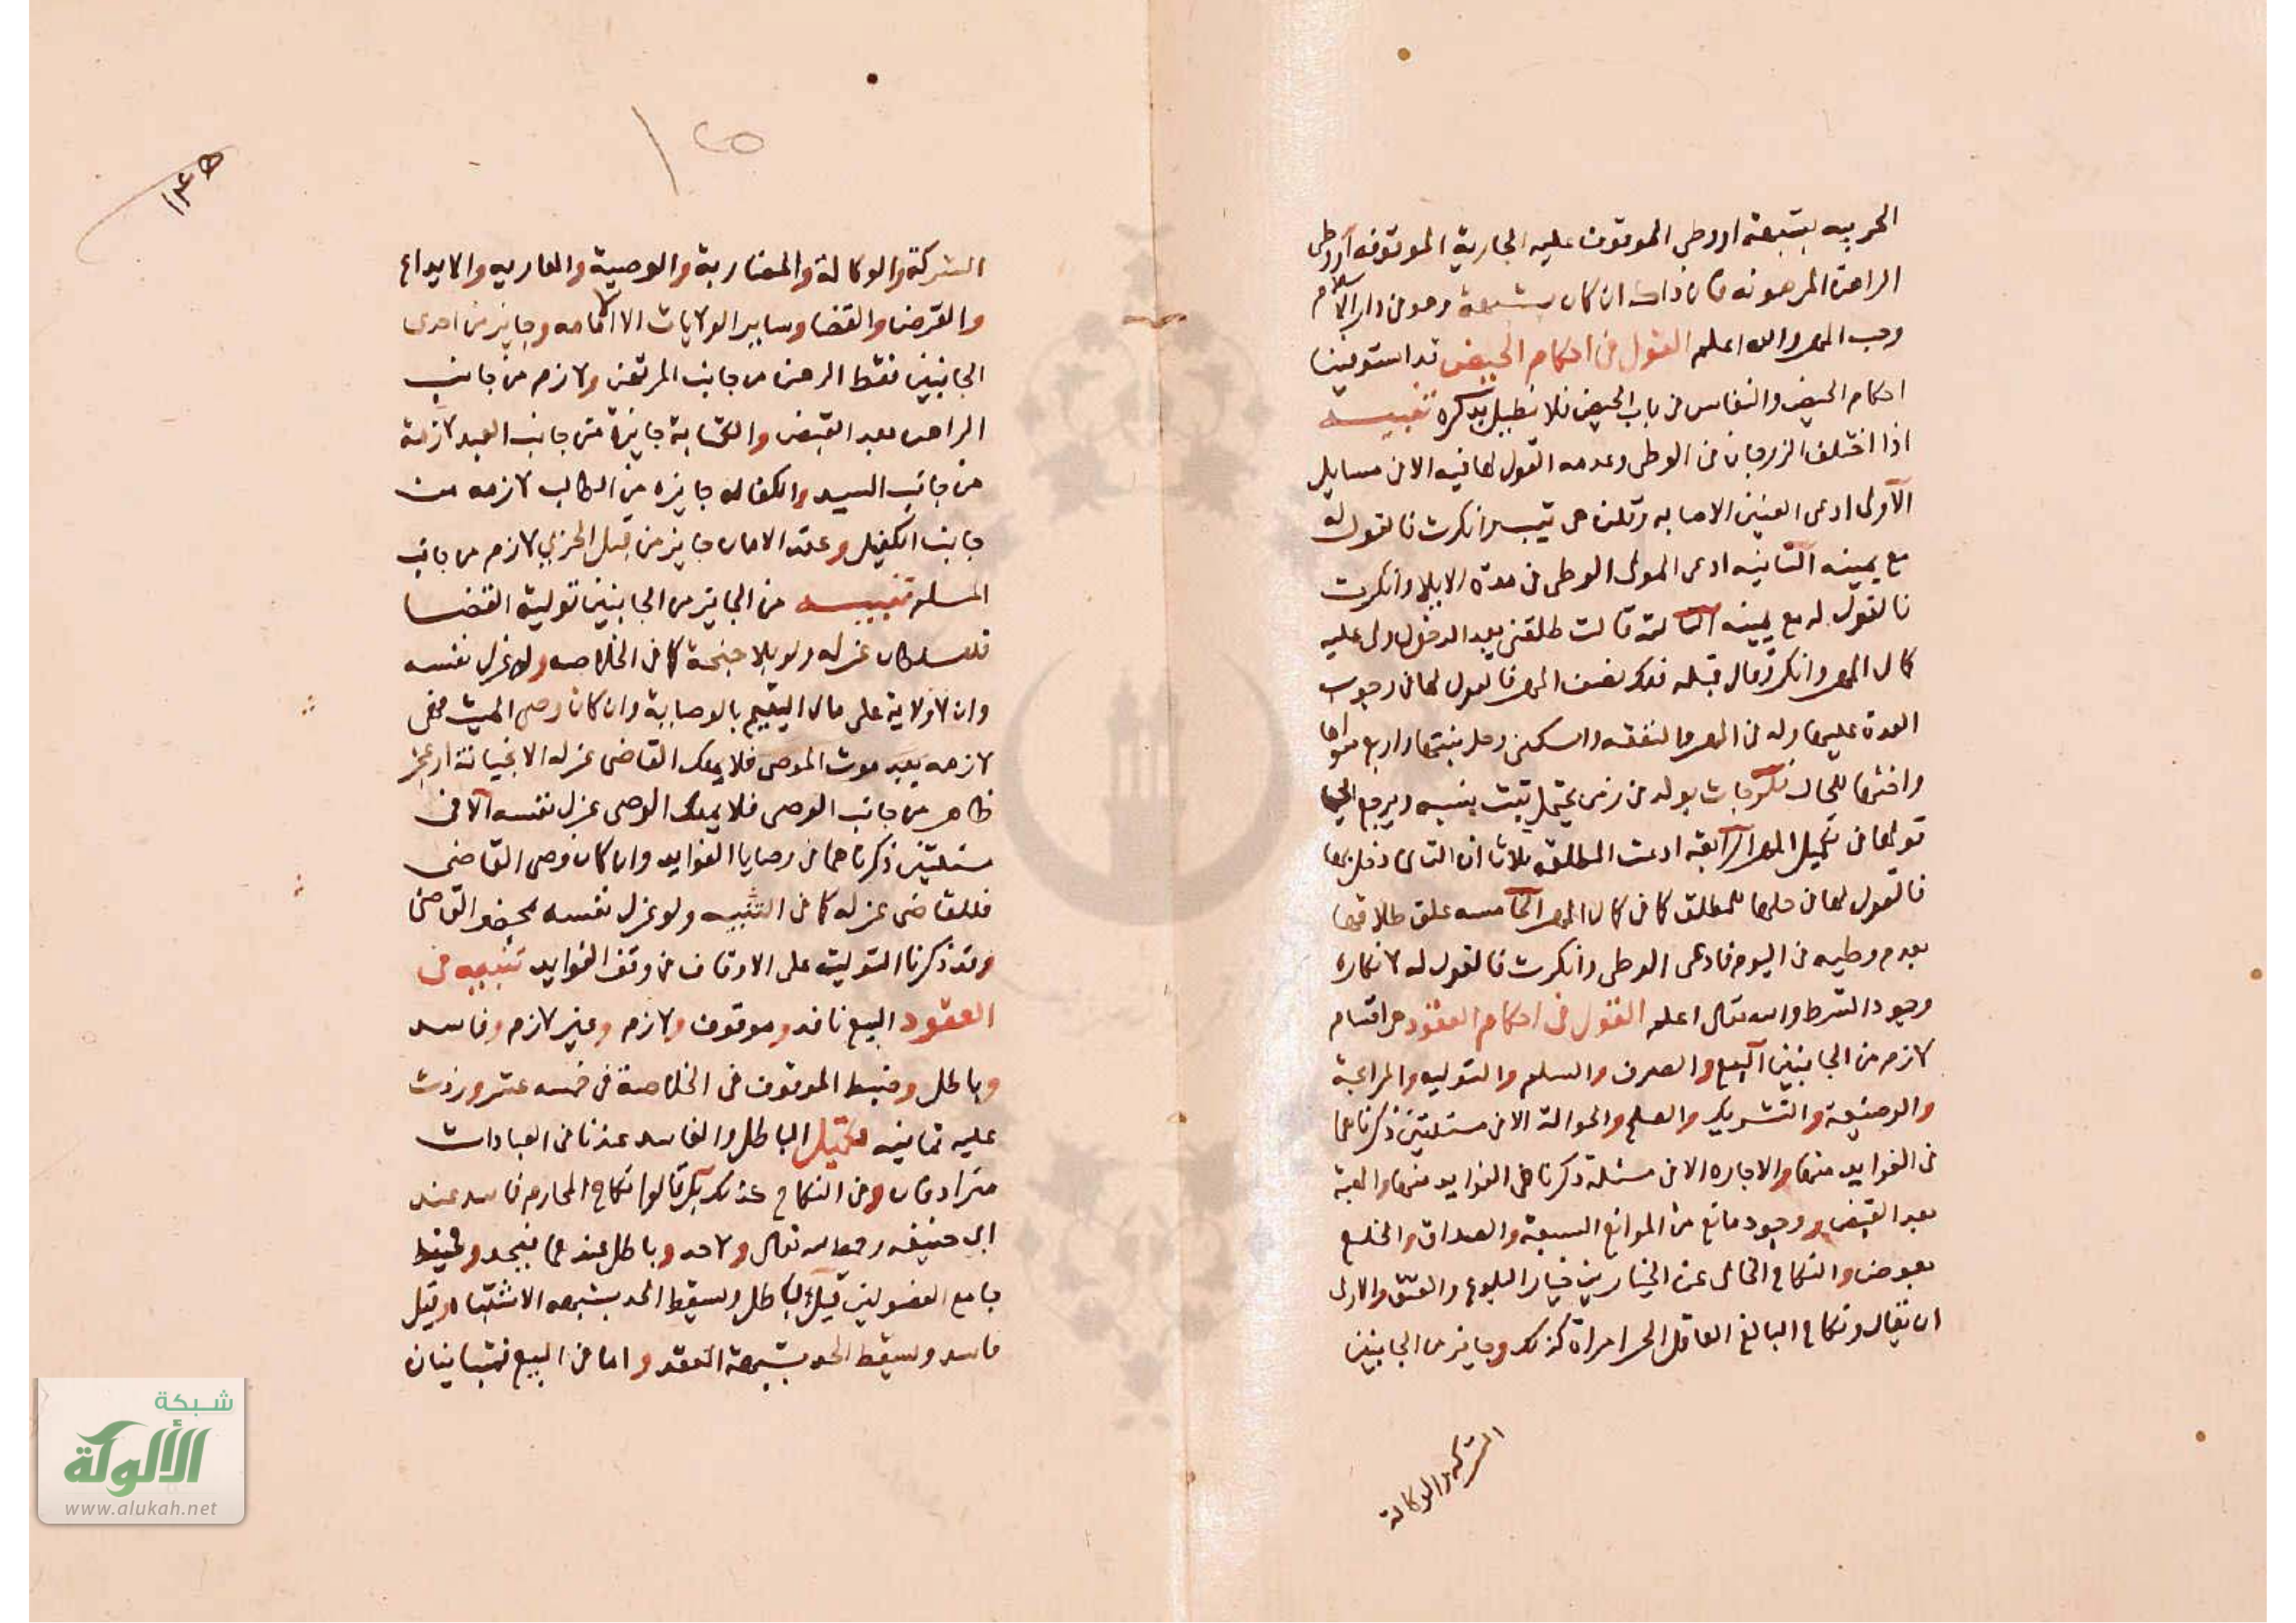 الحربيه بشبهة او وطى الموقوف عليه الجارية الموقوفه او وطى
الراهن المرهونه فان ذلك ان كان بشبهة وهو فى دار الاسلام
وجب المهر والله اعلم القول فى احكام الحيض قد استوفينا
احكام الحيض والنفاس فى باب الحيض فلا نطيل بذكره تنبيه
اذا اختلف الزوجان فى الوطى وعدمه القول لها فيه الا فى مسايل
الاولى ادعى العنين الاصابه وقلن هى ثيب وانكرت فالقول له
مع يمينه الثانيه ادعى المولى الوطى فى مدة الايلا وانكرت
فالقول له مع يمينه الثالثة قالت طلقنى بعد الدخول ولى عليه
كال المهر وانكر وقال قبله فلك نصف المهر فالقول لها فى وجوب
العدة عليها وله فى المهر والنفقه والسكنى وحل بنتها واربع سواها
واختها للحال فلو جات بولد فى زمن يحتمل ثبت نسبه ويرجع الى
قولها فى تكميل المهر الرابعة ادعت المطلقه ثلاثا ان الثانى دخل بها
فالقول لها فى حلها للمطلق كا فى كال المهر الخامسه علق طلاقها
بعدم وطيه فى اليوم فادعى الوطى وانكرت فالقول له لانكاره
وجود الشرط والله تعالى اعلم القول فى احكام العقود هى اقسام
لازم من الجانبين البيع والصرف والسلم والتوليه والمرابحة
والوضيعة والتشريك والصلح والحوالة الا فى مسئلتين ذكرناهما
فى الفوايد منها والاجاره الا فى مسئلة ذكرناها فى الفوايد منها والهبة
بعد القبض ووجود مانع من الموانع السبعة والصداق والخلع
بعوض والنكاح الخالى عن الخيارين خيار البلوغ والعتق والاولى
ان يقال ونكاح البالغ العاقل الحر امراة كذلك وجايز من الجانبين
الشركة والوكالة
١٢٥
١٢٥
الشركة والوكالة والمضاربة والوصية والعاريه والايداع
والقرض والقضا وساير الولايات الا الامامه وجايز من احدى
الجانبين فقط الرهن من جانب المرتهن ولازم من جانب
الراهن بعد القبض والكتابة جايزة من جانب العبد لازمة
من جانب السيد والكفاله جايزه من الطالب لازمه من
جانب الكفيل وعقد الامان جايز من قبل الحربي لازم من جانب
المسلم تنبيه من الجايز من الجانبين تولية القضا
فللسلطان عزله ولو بلا جنحة كا فى الخلاصه وله عزل نفسه
وان لا ولاية على مال اليتيم بالوصاية وان كان وصى الميت فهى
لازمه بعد موت الموصى فلا يملك القاضى عزله الا بخيانة او عجز
ظاهر من جانب الوصى فلا يملك الوصى عزل نفسه الا فى
مسئلتين ذكرناهما فى وصايا الفوايد وان كان وصى القاضى
فللقاضى عزله كا فى التنبيه ولو عزل نفسه بحضر القاضى
وقد ذكرنا التولية على الاوقاف فى وقف الفوايد تنبيه فى
العقود البيع نافد وموقوف ولازم وغير لازم وفاسد
وباطل وضبط الموقوف فى الخلاصة فى خمسه عشر وزدت
عليه ثمانيه تكميل الباطل والفاسد عندنا فى العبادات
مترادفان وفى النكاح كذلك لكن قالوا نكاح المحارم فاسد عند
ابى حنيفه رحمه الله تعالى ولا حد وباطل عندهما فيحد وفى
جامع الفصولين قيل باطل وسقط الحد بشبهه الاشتباه وقيل
فاسد وسقط الحد بشبهة العقد واما فى البيع فمتباينان
شبكة
الألوكة
www.alukah.net